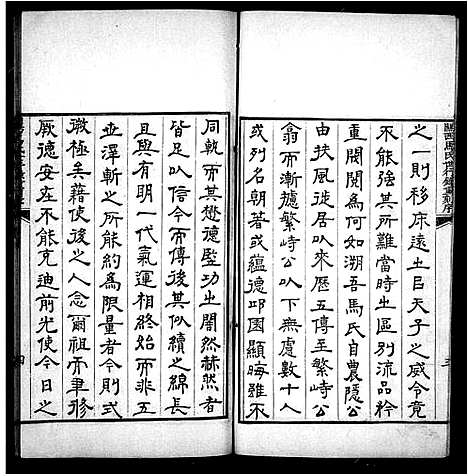 之一則移床遠土臣天子之威令竟
不能強其所難當時士區別流品矜
重閥閱爲何如溯吾馬氏自農隱公
由扶風徙居以來歷五傳至繁峙公
翕而漸擴繁峙公以下無慮數十人
或列名朝著或蘊德邱園顯晦雖不
同執而其懋德監功士闇然赫然者
皆足以信今而傳後其似續之綿長
且與有明一代氣運相終始而非五
世澤斬之所能約爲限量者今則式
微極矣藉使後之人念爾祖而聿修
厥德安在不能克迪前光使今日之